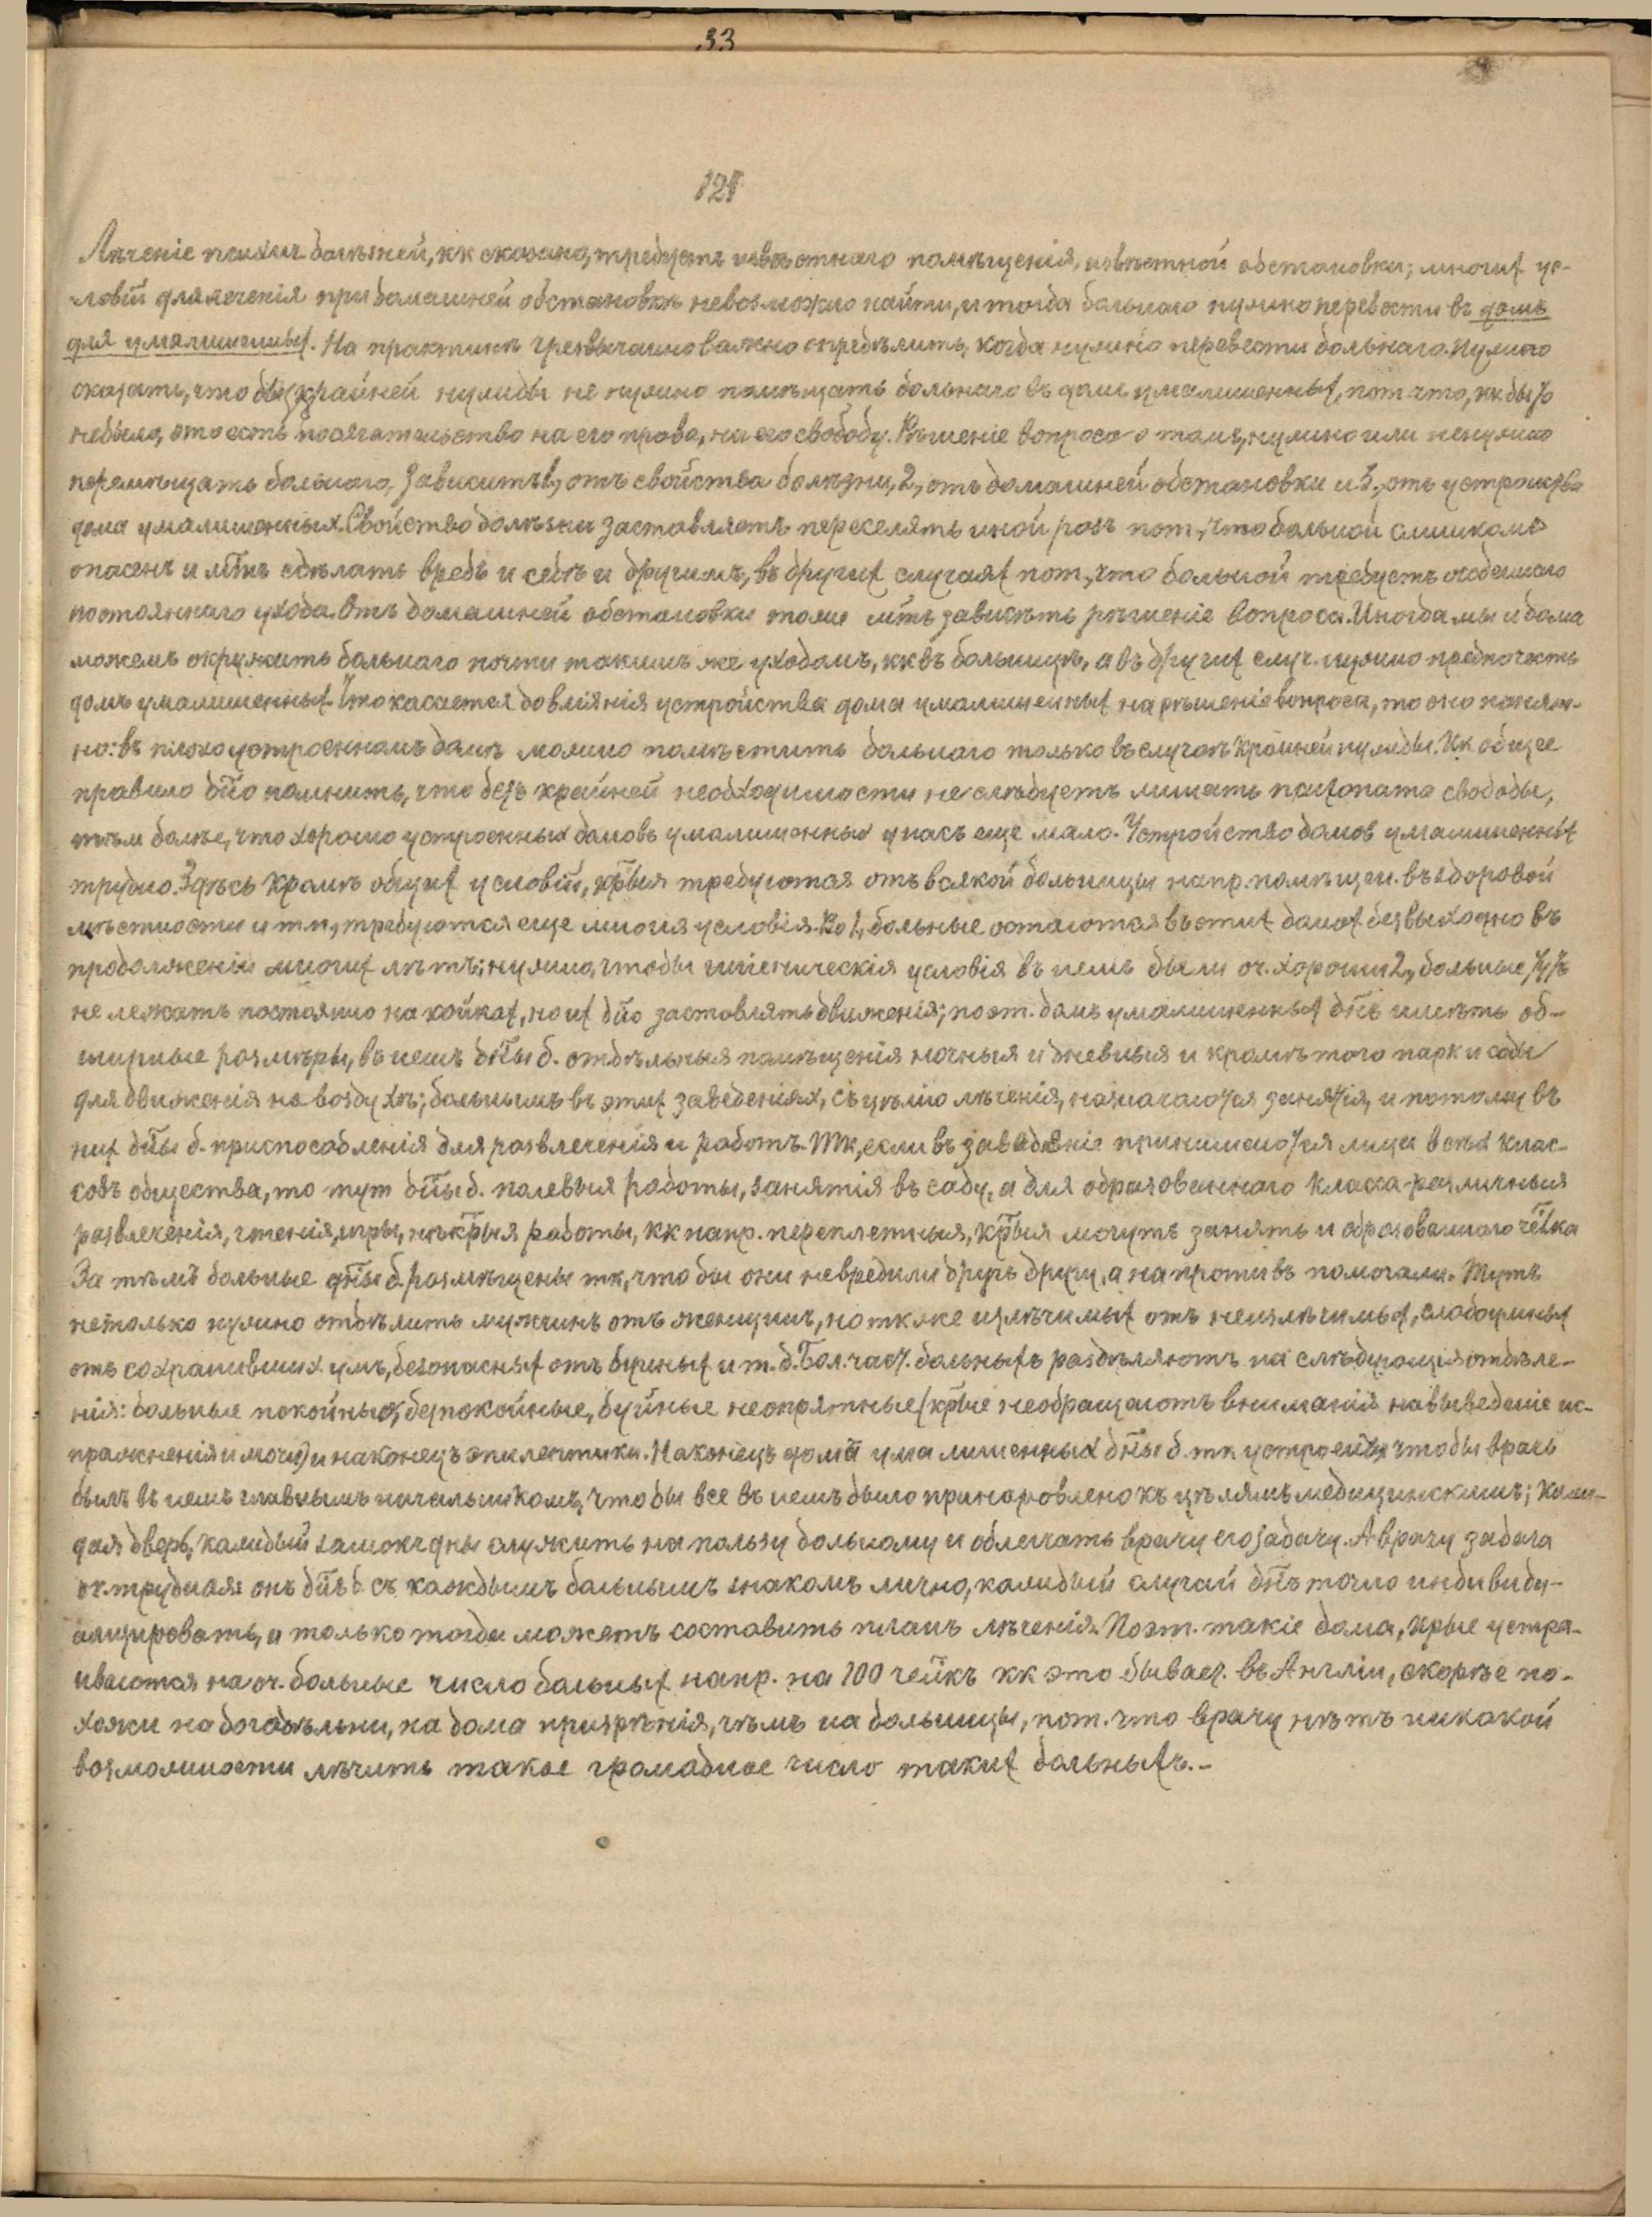 33
121
Лѣченіе психич. болѣзней, кк сказано, требуетъ извѣстнаго помѣщенія, извѣстной обстановки; многих ус-
ловій для леченія при домашней обстановкѣ невозможно найти, и тогда больнаго нужно перевести въ домъ
для умалишенных. На практикѣ чрезвычайно важно опредѣлить, когда нужно перевести больнаго. Нужно
сказать, что без крайней нужды не нужно помѣщать больнаго въ домъ умалишенных, пот. что, кк бы
небыло, это есть посягательство на его права, на его свободу. Рѣшеніе вопроса о томъ, нужно или ненужно
перемѣщать больнаго, зависитъ 1, отъ свойства болѣзни, 2, отъ домашней обстановки и 3, отъ устройства
дома умалишенных. Свойство болѣзни заставляетъ переселять иной разъ пот., что больной слишкомъ
опасенъ и мтъ сдѣлать вредъ и себѣ и другимъ, въ других случаях пот., что больной требуетъ особеннаго
постояннаго ухода. Отъ домашней обстановки тоже мтъ зависѣть рѣшеніе вопроса. Иногда мы и дома
можемъ окружить больнаго почти такимъ же уходомъ, кк въ больницѣ, а въ других случ. нужно предпочесть
домъ умалишенных. Что касается до вліянія устройства дома умалишенных на рѣшеніе вопроса, то оно понят-
но: въ плохо устроенномъ домѣ можно помѣстить больнаго только въ случаѣ крайней нужды. Кк общее
правило дно помнить, что безъ крайней необходимости не слѣдуетъ лишать психопата свободы,
тѣм болѣе, что хорошо устроенных домовъ умалишенных у насъ еще мало. Устройство домов умалишенных
трудно. Здѣсь кромѣ общих условій, крыя требуются отъ всякой больницы напр. помѣщен. въ здоровой
мѣстности и т.п., требуются еще многія условія. Во 1, больные остаются въ этих домах безвыходно въ
продолженіи многих лѣтъ; нужно, чтобы гигіеническія условія въ немъ были оч. хороши 2, больные
не лежатъ постоянно на койках, но их дно заставлять движенія; поэт. домъ умалишенных днъ имѣть об-
ширные размѣры, въ немъ дны б. отдѣльныя помѣщенія ночныя и дневныя и кромѣ того парк и сады
для движенія на воздухѣ; больнымъ въ этих заведеніях, съ цѣлію лѣченія, назначаются занятія, и потому въ
них дны б. приспособленія для развлеченія и работъ. Тк, если въ заведеніе принимаются лица всѣх клас-
совъ общества, то тут дны б. полевыя работы, занятія въ саду, а для образованнаго класса - различныя
развлеченія, чтенія, игры, нѣкрыя работы, кк напр. переплетныя, крыя могутъ занять и образованнаго члвка
За тѣмъ больные дны б. размѣщены тк, чтобы они невредили другъ другу, а напротивъ помогали. Тутъ
нетолько нужно отдѣлить мужчинъ отъ женщинъ, но ткже излѣчимых отъ неизлѣчимых, слабоумных
отъ сохранивших умъ, безопасных отъ буйных и т.д. Бол. част. больныхъ раздѣляютъ на слѣдующія отдѣле-
нія: больные покойные, безпокойные, буйные неопрятные (крые необращаютъ вниманія навыведеніе ис-
пражненія и мочи) и наконецъ эпилептики. Наконецъ дома ума лишенных дны б. тк устроены, чтобы врачъ
былъ въ немъ главнымъ начальникомъ, чтобы все въ немъ было приноровлено къ цѣлямъ медицинскимъ; каж-
дая дверь, каждый замокъ дны служить на пользу больному и облегчать врачу его задачу. А врачу задача
оч. трудная: онъ днъ б съ каждымъ больнымъ знакомъ лично, каждый случай днъ точно индивиду-
ализировать, и только тогда можетъ составить планъ лѣченія. Поэт. такіе дома, крые устра-
иваются на оч. большое число больных напр. на 100 члвкъ кк это бывает. въ Англіи, скорѣе по-
хожи на богадѣльни, на дома призрѣнія, чѣмъ на больницы, пот. что врачу нѣтъ никакой
возможности лѣчить такое громадное число таких больныхъ.-